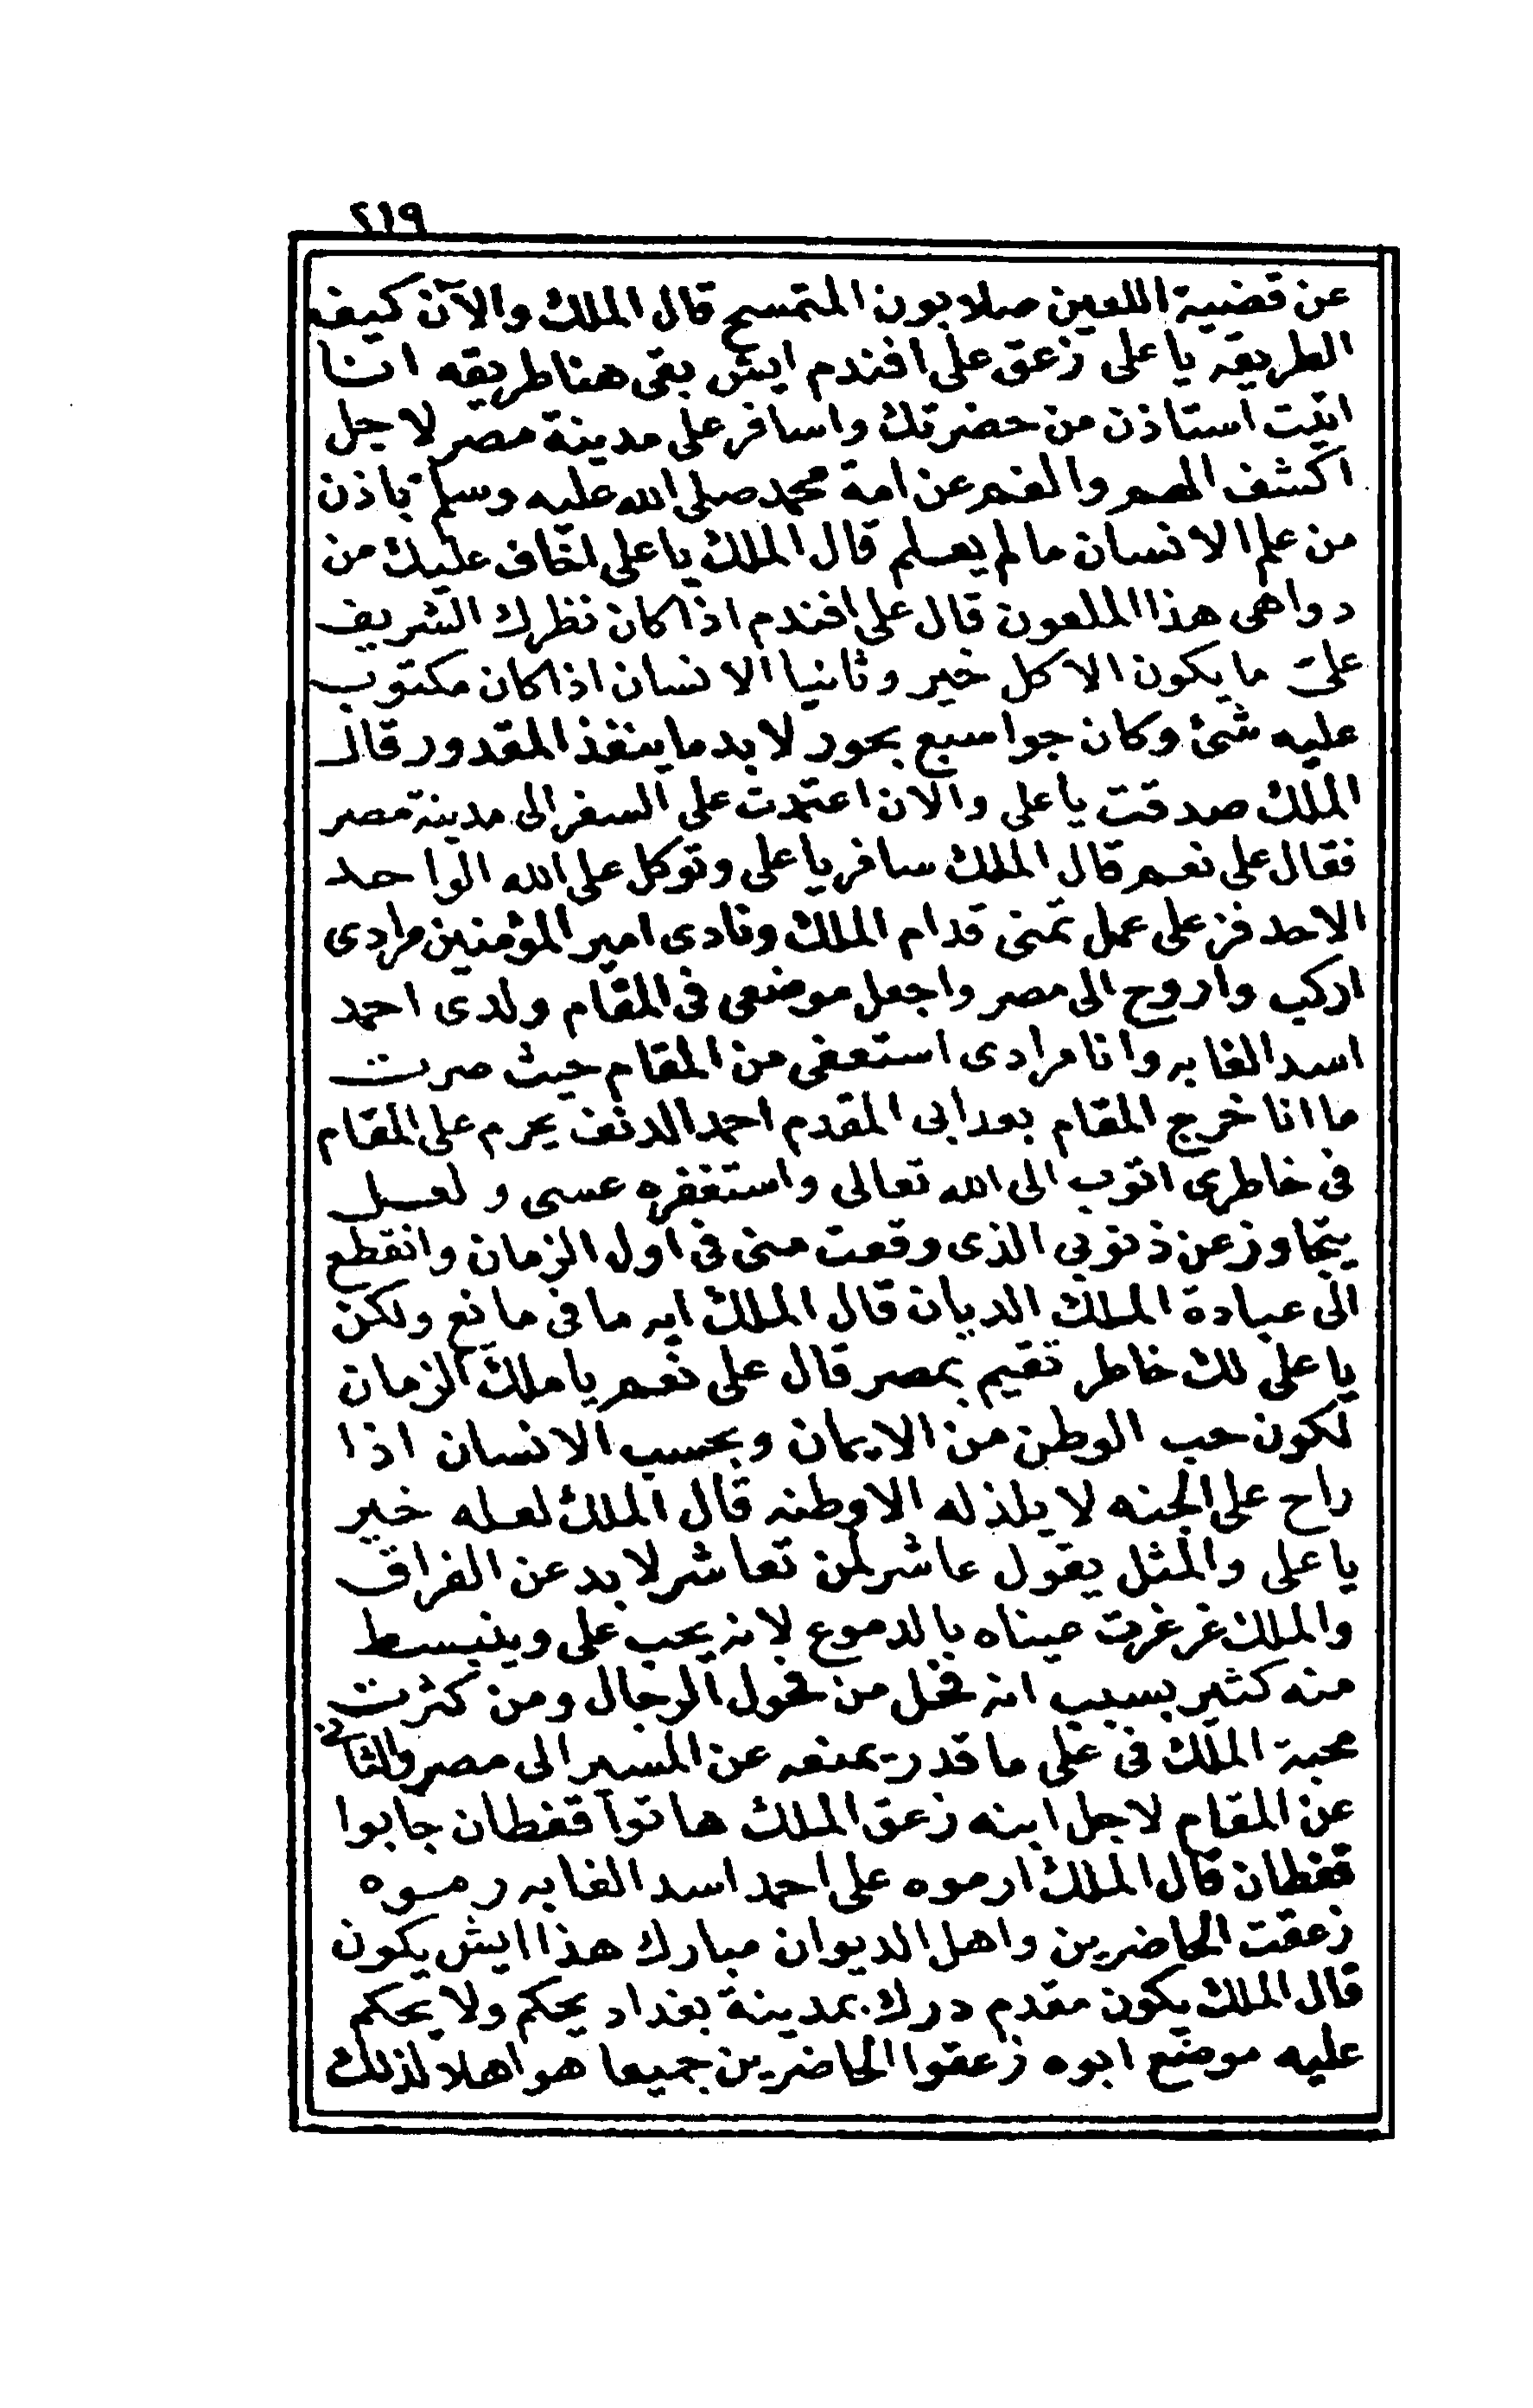 ٢١٩
عن قضية اللعين صلابون المتمسح قال الملك والآن كيف
الطريقه يا على زعق على افندم ايش بقى هنا طريقه انا
اتيت استاذن من حضرتك واسافر على مدينة مصر لاجل
اكشف الهم والغم عن امة محمد صلى الله عليه وسلم باذن
من علم الانسان ما لم يعلم قال الملك يا على اخاف عليك من
دواهى هذا الملعون قال على افندم اذا كان نظرك الشريف
علىّ ما يكون الا كل خير وثانيا الانسان اذا كان مكتوب
عليه شئ وكان جوا سبع بحور لابد ما ينفذ المقدور قال
الملك صدقت يا على والان اعتمدت على السفر الى مدينة مصر
فقال على نعم قال الملك سافر يا على وتوكل على الله الواحد
الاحد فز على عمل تمنى قدام الملك ونادى امير المؤمنين مرادى
اركب واروح الى مصر واجعل موضعى فى المقام ولدى احمد
اسد الغابه وانا مرادى استعفى من المقام حيث صرت
ما انا خرج المقام بعد ابى المقدم احمد الدنف يحرم على المقام
فى خاطرى اتوب الى الله تعالى واستغفره عسى ولعل
يتجاوز عن ذنوبي الذى وقعت منى فى اول الزمان وانقطع
الى عبادة الملك الديان قال الملك ايه ما فى مانع ولكن
يا على لك خاطر تقيم بمصر قال على نعم يا ملك الزمان
لكون حب الوطن من الايمان وبحسب الانسان اذا
راح على الجنه لا يلذ له الا وطنه قال الملك لعله خير
يا على والمثل يقول عاشر لمن تعاشر لابد عن الفراق
والملك غرغرت عيناه بالدموع لانه يحب على وينبسط
منه كثير بسبب انه فحل من فحول الرجال ومن كثرت
محبة الملك فى على ما قدر يمنعه عن المسير الى مصر والثانى
عن المقام لاجل ابنه زعق الملك هاتوا قفطان جابوا
قفطان قال الملك ارموه على احمد اسد الغابه رموه
زعقت الحاضرين واهل الديوان مبارك هذا ايش يكون
قال الملك يكون مقدم درك بمدينة بغداد يحكم ولا يحكم
عليه موضع ابوه زعقوا الحاضرين جميعا هو اهلا لذلك